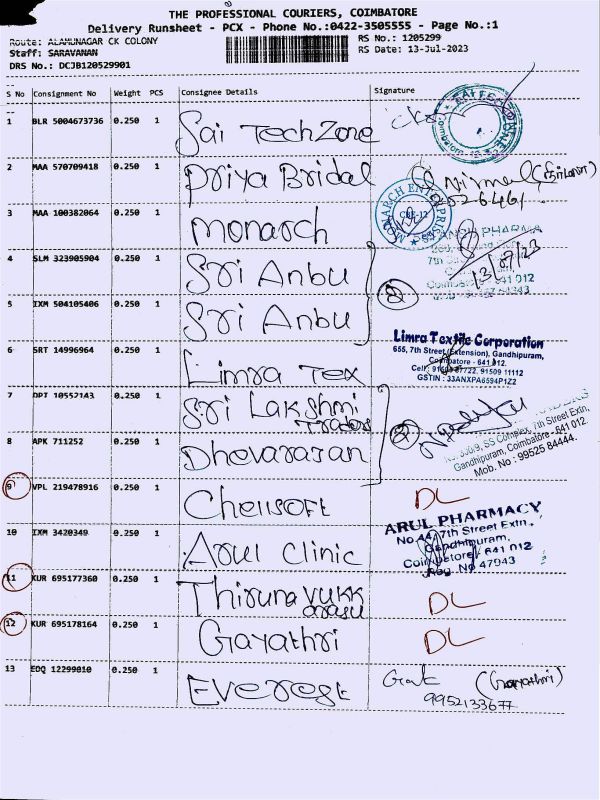 THE PROFESSIONAL COURIERS, COIMBATORE
Delivery Runsheet - PCX - Phone No.:0422-3505555 - Page No.:1
Route: ALAMUNAGAR CK COLONY
RS No.: 1205299
Staff: SARAVANAN
RS Date: 13-Jul-2023
DRS No.: DCJB120529901
S No Consignment No Weight PCS Consignee Details Signature
1 BLR 5004673736 0.250 1 Sai TechZone
2 MAA 570709418 0.250 1 Priya Bridal Nirmal
3 MAA 100382064 0.250 1 Monarch
MONARCH ENTERPRISES
CBE-12
PHARMA
13/07/23
4 SLM 323905904 0.250 1 Sri Anbu
641 012
5 IXM 504105406 0.250 1 Sri Anbu
2
Limra Textile Corporation
655, 7th Street (Extension), Gandhipuram,
Coimbatore - 641 012.
6 SRT 14996964 0.250 1 Limra Tex
91509 11112
GSTIN : 33ANXPA6594P1Z2
7 DPT 10552143 0.250 1 Sri Lakshmi
Traders
8 APK 711252 0.250 1 Dhevarasan
2
SS Complex, 7th Street Extn,
Gandhipuram, Coimbatore - 641 012.
Mob. No : 99525 84444.
9 VPL 219478916 0.250 1 Chellsoft DL
10 IXM 3420349 0.250 1 Arul Clinic
ARUL PHARMACY
No.44, 7th Street Extn.,
Gandhipuram,
Coimbatore - 641 012
Reg. No 47043
11 KUR 695177360 0.250 1 Thirunavukk
arasu DL
12 KUR 695178164 0.250 1 Gayathri DL
13 EDQ 12299010 0.250 1 Everest (Gayathri)
9952133677